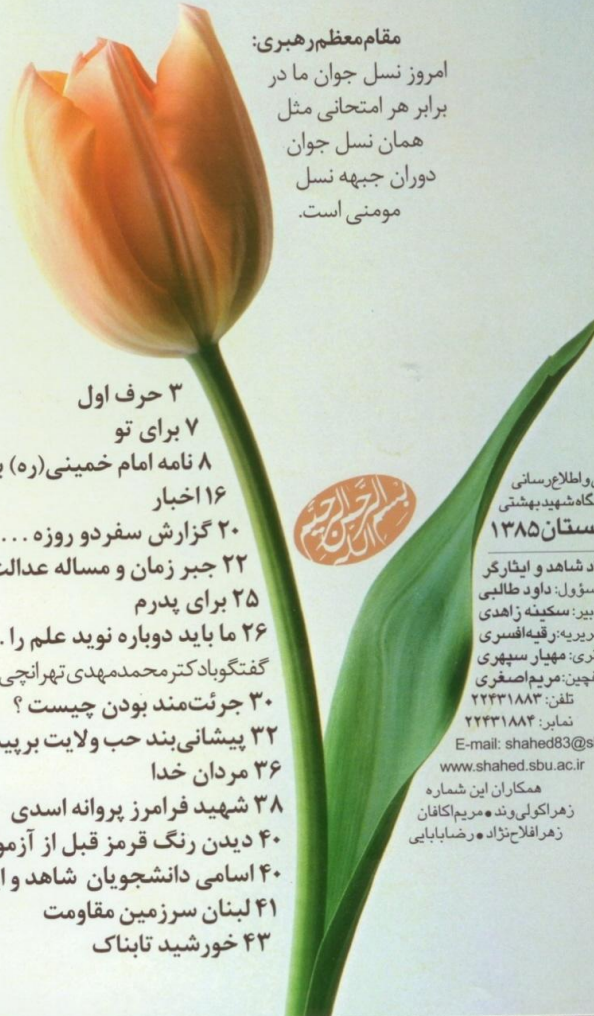 مقام‌معظم‌رهبری:
امروز نسل جوان ما در
برابر هر امتحانی مثل
همان نسل جوان
دوران جبهه نسل
مومنی است.
بسم الله الرحمن الرحیم
۳ حرف اول
۷ برای تو
۸ نامه امام خمینی(ره)
۱۶ اخبار
۲۰ گزارش سفر دو روزه ...
۲۲ جبر زمان و مساله عدالت
۲۵ برای پدرم
۲۶ ما باید دوباره نوید علم را
گفتگو با دکتر محمدمهدی تهرانچی
۳۰ جرئت‌مند بودن چیست ؟
۳۲ پیشانی‌بند حب ولایت بر
۳۶ مردان خدا
۳۸ شهید فرامرز پروانه اسدی
۴۰ دیدن رنگ قرمز قبل از
۴۰ اسامی دانشجویان شاهد و
۴۱ لبنان سرزمین مقاومت
۴۳ خورشید تابناک
و اطلاع‌رسانی
شهید بهشتی
۱۳۸۵
شاهد و ایثارگر
داود طالبی
سکینه زاهدی
رقیه افسری
مهیار سپهری
مریم اصغری
تلفن: ۲۲۴۳۱۸۸۳
نمابر: ۲۲۴۳۱۸۸۴
E-mail: shahed83@s
www.shahed.sbu.ac.ir
همکاران این شماره
زهرا کولی‌وند • مریم اکافان
زهرا فلاح‌نژاد • رضا بابایی